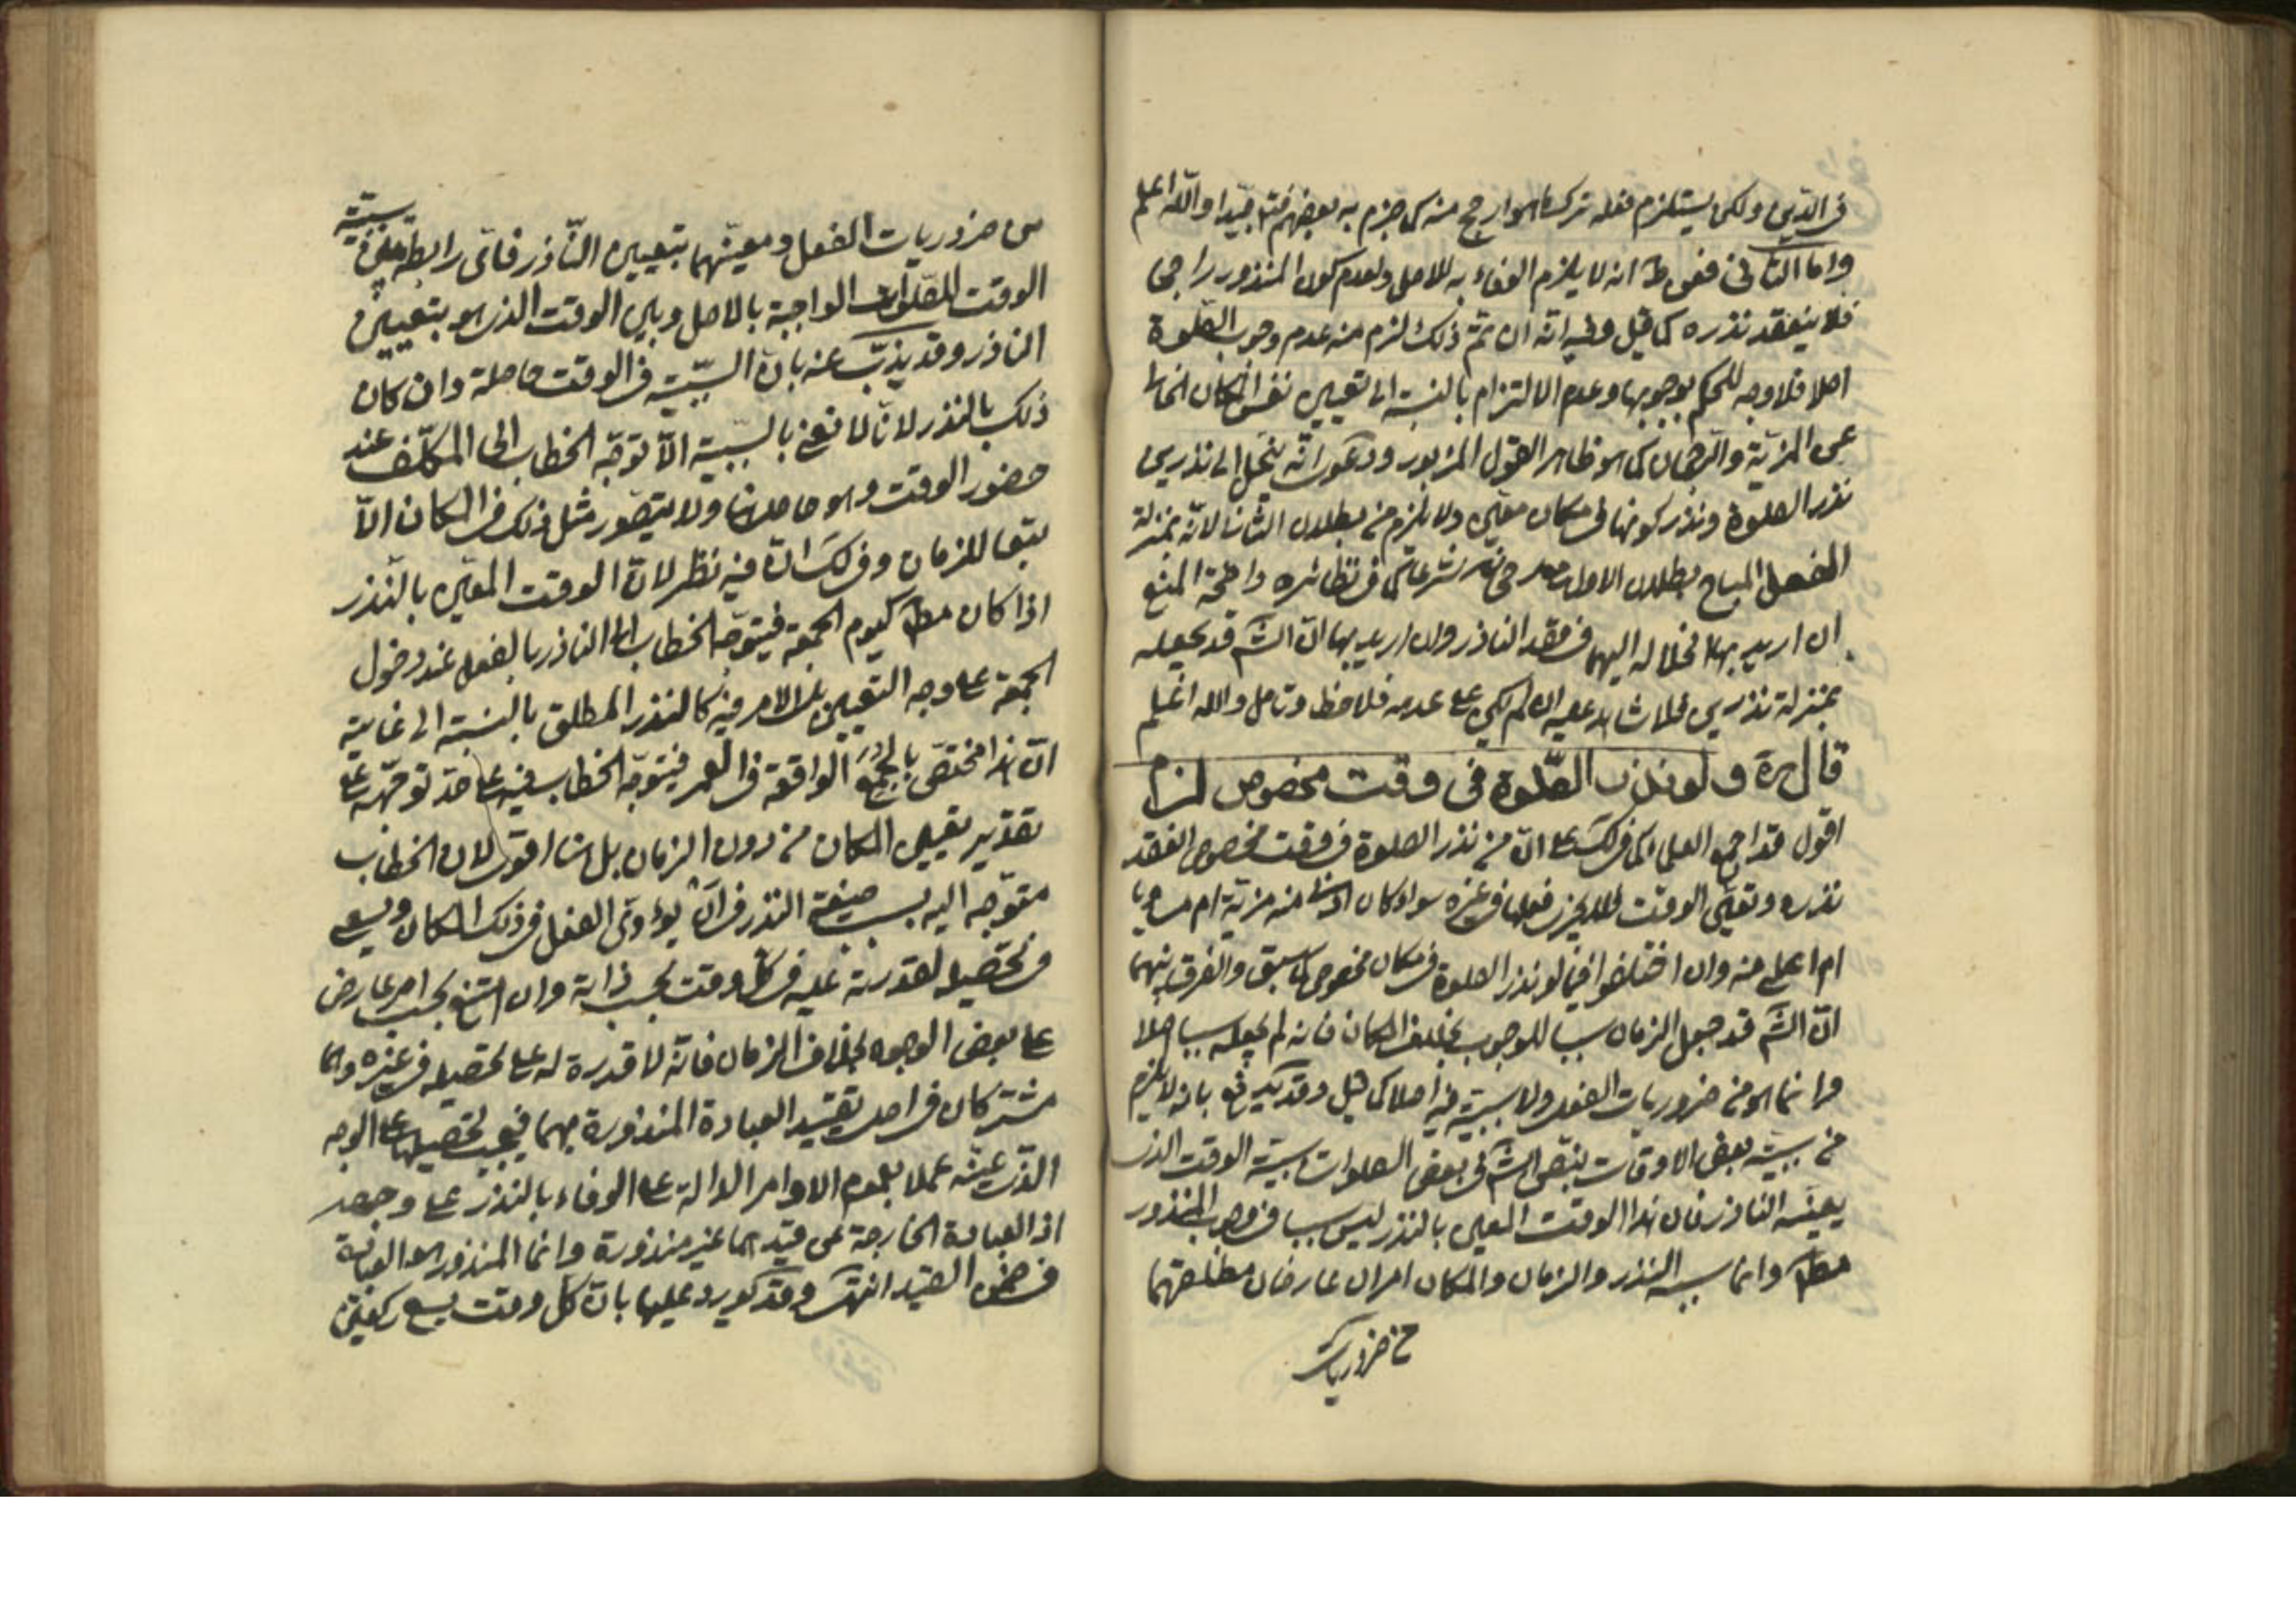 في الدين ولكن يستلزم فعله ترك ما هو ارجح منه كما جزم به بعضهم فتأمل جيدا والله اعلم
واما الثاني فهو ط انه لا يلزم الوفاء به للاصل ولعدم كون المنذور راجحا
فلا ينعقد نذره كما قيل وفيه انه ان تم ذلك لزم منه عدم وجوب الصلوة
اصلا فلا وجه للحكم بوجوبها وعدم الالتزام بالنسبة الى تعيين نفس المكان الخالي
عن المزية والرجحان كما هو ظاهر القول المزبور ودعوى انه ينحل الى نذرين
نذر الصلوة ونذر كونها في مكان معين ولا يلزم من بطلان الثاني لانه بمنزلة
الفعل المباح بطلان الاول شرعا كما في نظائره واضحة المنع
ان اريد بها انحلاله اليهما في قصد الناذر وان اريد بها ان الش قد يجعله
بمنزلة نذرين فلا شاهد عليه ان لم يكن على عدمه فلاحظ وتامل والله اعلم
قال ره ولو نذر الصلوة في وقت مخصوص لزم
اقول قد اجمع العلماء كما في لك على ان من نذر الصلوة في وقت مخصوص انعقد
نذره وتعين الوقت فلا يجزي فعلها في غيره سواء كان ادنى منه مزية ام مساويا
ام اعلى منه وان اختلفوا فيما لو نذر الصلوة في مكان مخصوص كما سبق والفرق بينهما
ان الش قد جعل الزمان سببا للوجوب بخلاف المكان فانه لم يجعله سببا اصلا
وانما هو من ضروريات الفعل ولا سببية فيه اصلا كما قيل وقد يدفع بانه لا يلزم
من سببية بعض الاوقات بنص الش في بعض الصلوات سببية الوقت الذي
يعينه الناذر فان هذا الوقت المعين بالنذر ليس سببا في وجوب المنذور
مط وانما سببه النذر والزمان والمكان امران عارضان مطلقهما
من ضروريات
من ضروريات الفعل ومعينهما بتعيين الناذر فاي رابطة بين سببية
الوقت للصلوات الواجبة بالاصل وبين الوقت الذي هو بتعيين
الناذر وقد يذب عنه بان السببية في الوقت حاصلة وان كان
ذلك بالنذر لانا لا نعني بالسببية الا توجه الخطاب الى المكلف عند
حضور الوقت وهو حاصل هنا ولا يتصور مثل ذلك في المكان الا
تبعا للزمان وفي لك ان فيه نظر لان الوقت المعين بالنذر
اذا كان مط كيوم الجمعة فيتوجه الخطاب الى الناذر بالفعل عند دخول
الجمعة على وجه التعيين بل الامر فيه كالنذر المطلق بالنسبة الى غايته
ان هذا مختص بالجمع الواقعة في العمر فيتوجه الخطاب فيه على حد توجهه على
تقدير تعيين المكان من دون الزمان بل هنا اقوى لان الخطاب
متوجه اليه بسبب صيغة النذر في ان يؤدي الفعل في ذلك المكان ويسعى
في تحصيله لقدرته عليه في كل وقت بحسب ذاته وان امتنع بحسب امر عارض
على بعض الوجوه بخلاف الزمان فانه لا قدرة له على تحصيله في غيره وانما
مشتركان في اصل تقييد العبادة المنذورة بهما فيجب تحصيلها على الوجه
الذي عينه عملا بعموم الاوامر الدالة على الوفاء بالنذر على وجهه
اذ العبادة الخارجة عن قيدهما غير منذورة وانما المنذور هو العبادة
في ضمن القيد انتهى وقد يورد عليها بان كل وقت يسع ركعتين